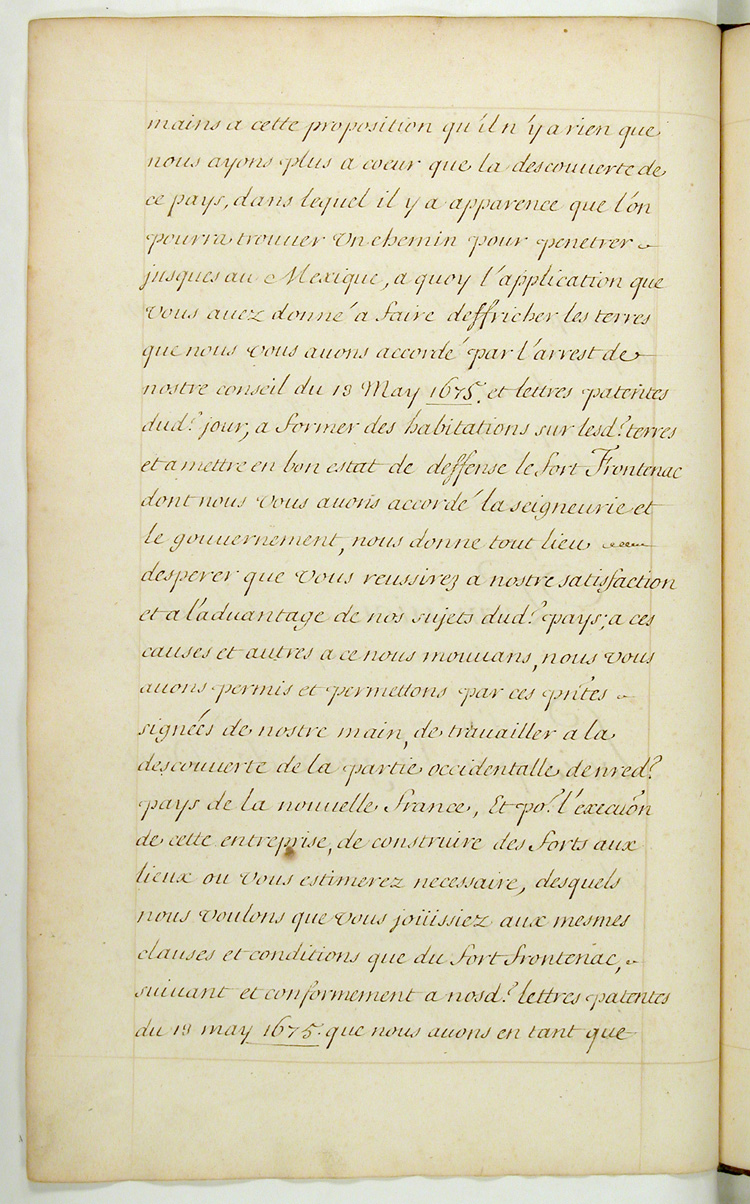 mains a cette proposition qu'il n'y a rien que
nous ayons plus a coeur que la descouuerte de
ce pays, dans lequel il y a apparence que l'on
pourra trouuer vn chemin pour penetrer
jusques au Mexique, a quoy l'application que
vous auez donné a faire deffricher les terres
que nous vous auons accordé par l'arrest de
nostre conseil du 13 May 1675. et lettres patentes
dud.t jour, a former des habitations sur lesd.t terres
et a mettre en bon estat de deffense le fort Frontenac
dont nous vous auons accordé la seigneurie et
le gouuernement, nous donne tout lieu
desperer que vous reussirez a nostre satisfaction
et a l'aduantage de nos sujets dud.t pays; a ces
causes et autres a ce nous mouuans, nous vous
auons permis et permettons par ces pñtes
signées de nostre main, de trauailler a la
descouuerte de la partie occidentalle de nred.t
pays de la nouuelle france, Et po.r l'execuõn
de cette entreprise, de construire des forts aux
lieux ou vous estimerez necessaire, desquels
nous voulons que vous joüissiez aux mesmes
clauses et conditions que du fort frontenac,
suiuant et conformement a nosd.t lettres patentes
du 13 may 1675. que nous auons en tant que